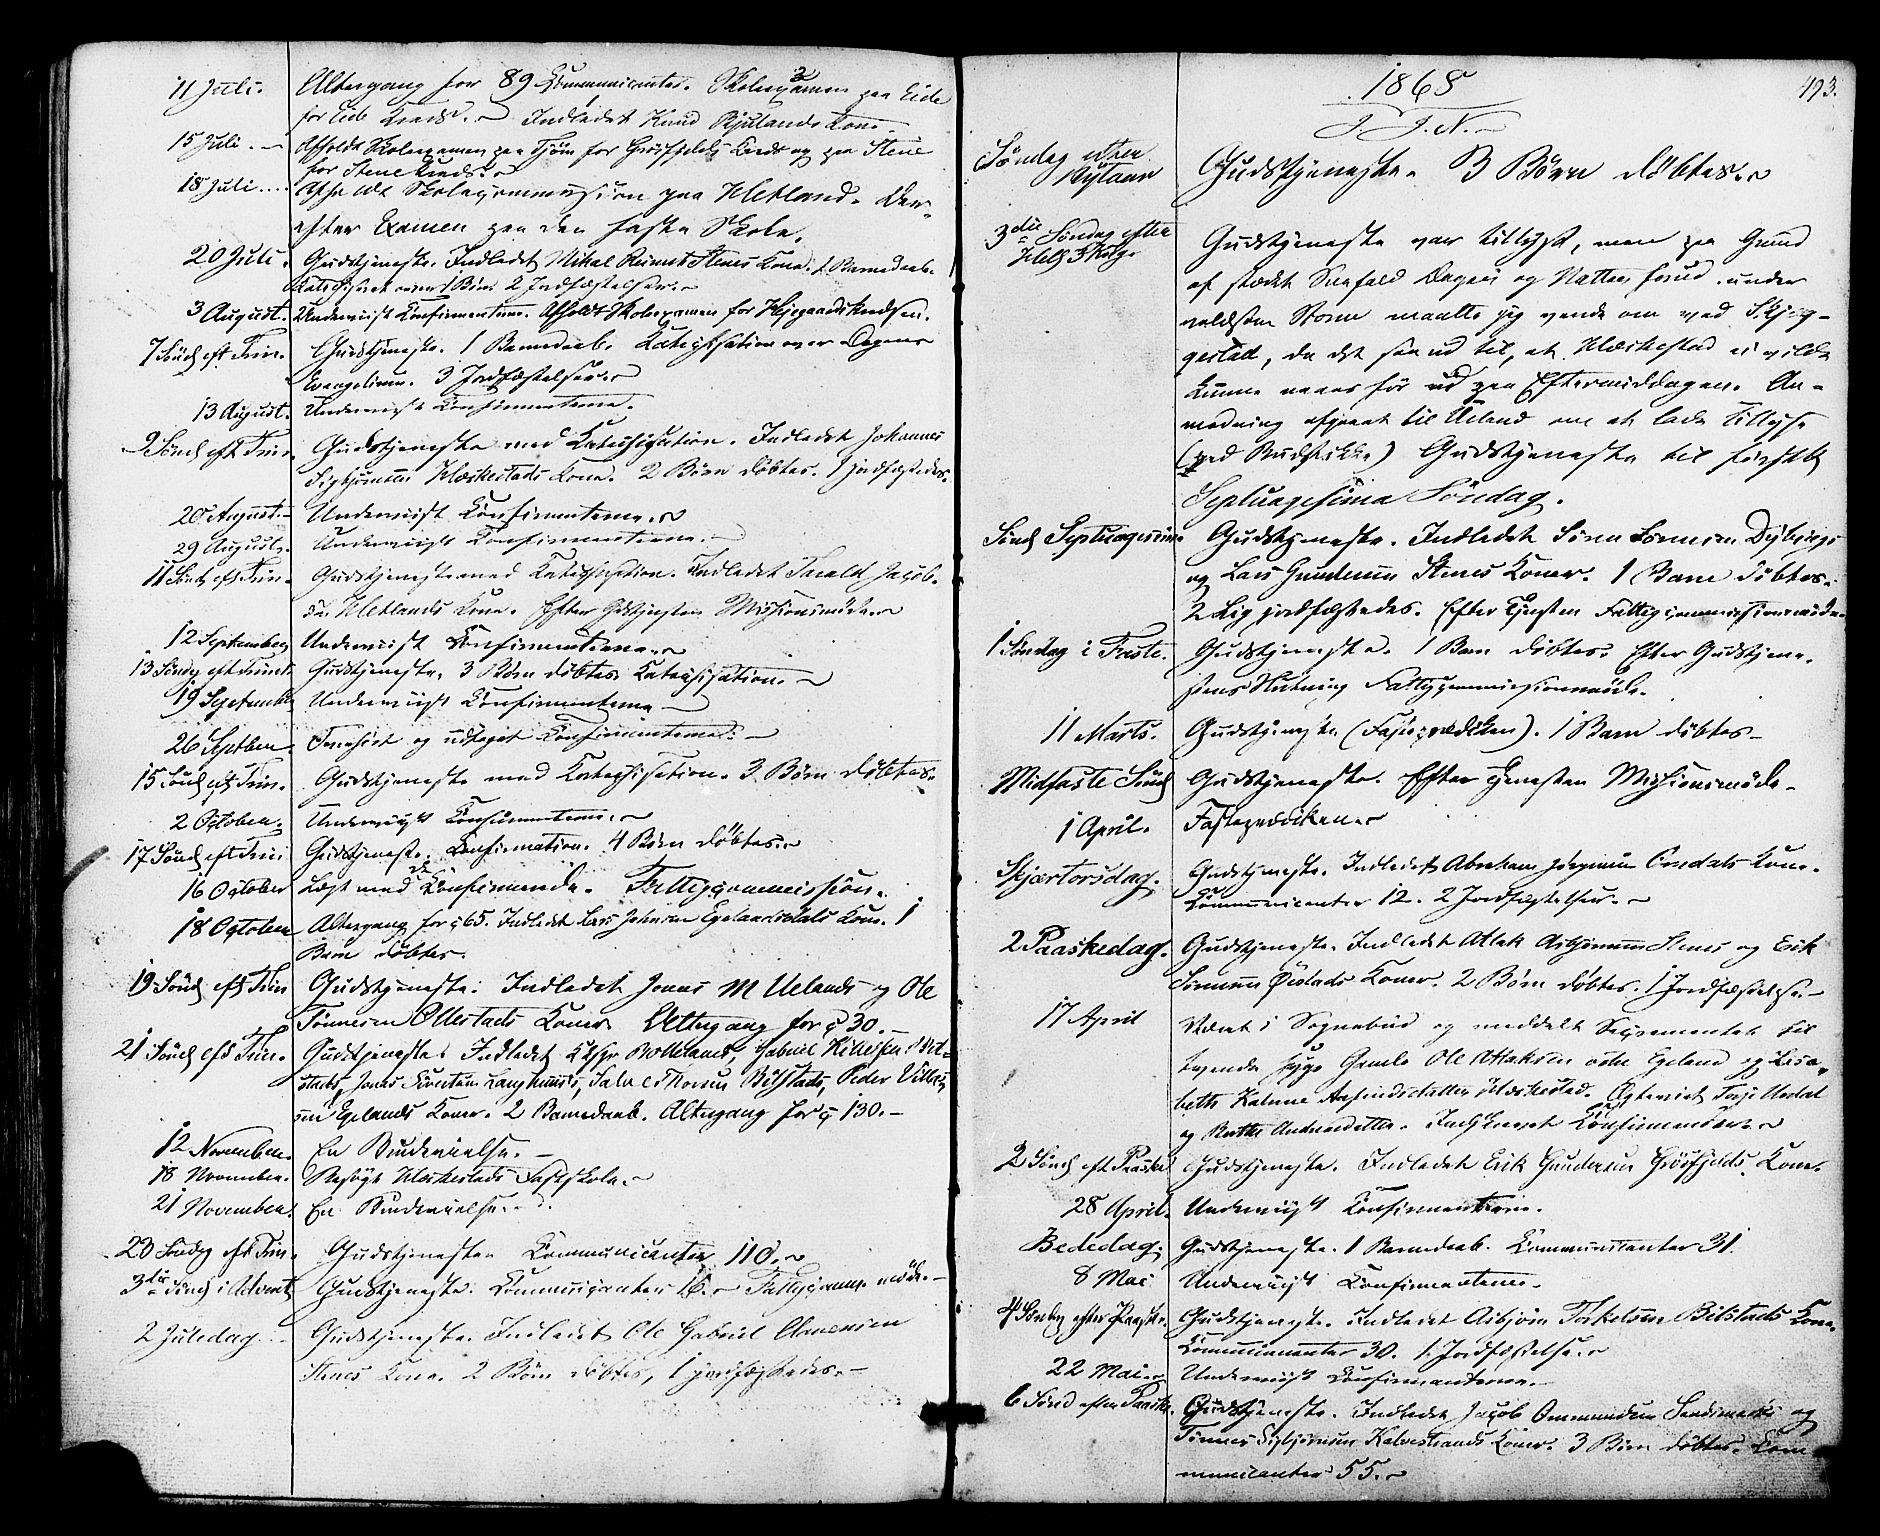 11 Juli. Altergang for 89 Communicanter. Skoleexamen paa Eide
for Eide Kreds. Indledet Knud Kone.
15 Juli. Afholdt Skoleexamen paa Tjørn for Grøsfjelds Kreds og paa Stene
for Stene Kreds.
18 Juli Skolecommission paa Hetland. Der-
efter Examen paa den faste Skole.
20 Juli. Gudstjeneste. Indledet Mikal Stenes Kone. 1 Barnedaab.
1 Barn 2 Jordfæstelser.
3 August. Underviist Confirmanterne. Afholdt Skoleexamen for
7 Sönd eft Trin. Gudstjeneste. 1 Barnedaab. Katechisation over Dagens
Evangelium. 3 Jordfæstelser.
13 August. Underviist Confirmanterne.
9 Sönd eft Trin. Gudstjeneste med Katechisation. Indledet Johannes
Sigbjörnsen Hæskestads Kone. 2 Börn döbtes. 1 jordfæstedes.
20 August. Underviist Confirmanterne.
29 August. Underviist Confirmanterne.
11 Sönd eft Trin. Gudstjeneste med Katechisation. Indledet Tarald Jacob-
sen Hetlands Kone. Efter Gudstjenesten Missionsmöde.
12 September Underviist Confirmanterne.
13 Söndg eft Trinit. Gudstjeneste. 3 Börn döbtes. Katechisation.
19 September Underviist Confirmanterne
26 Septber og udtaget Confirmanterne.
15 Sönd eft Trin. Gudstjeneste med Katechisation. 3 Börn döbtes.
2 October. Underviist Confirmanterne.
17 Sönd eft Trin Gudstjeneste. Confirmation. 4 Börn döbtes.
16 October Læst med de Confirmerede. Fattigcommission.
18 October Altergang for 65. Indledet Lars Johnsen Egelandsdals Kone. 1
Barn döbtes.
19 Sönd eft Trin Gudstjeneste. Indledet Jonas M Uelands og Ole
Tönnesen Ollestads Koner. Altergang for 30.
21 Sönd eft Trin. Gudstjeneste. Indledet Gabriel
stads, Jonas Salve Bilstads, Peder
sen Egelands Koner. 2 Barnedaab. Altergang for 130.
12 November. En Brudevielse.
18 November. Besögt Hæskestads Fastskole.
21 November. En Brudevielse.
23 Söndg eft Trin. Gudstjeneste. Communicanter 110.
3die Sönd i Advent Gudstjeneste. Communicanter Fattigcomm. möde.
2 Juledag Gudstjeneste. Indledet Ole Gabriel
Stenes Kone. 2 Börn döbtes, 1 jordfæstedes.
493.
1868
J. J. N.
Söndag efter
Nytaar Gudstjeneste. 3 Börn döbtes.
3die Söndag efter
Hell. 3 Kong. Gudstjeneste var tillyst, men paa Grund
af stærkt Snefald Dagen og Natten forud under
voldsom Storm maatte jeg vende om ved Skjeg-
gestad, da det saa ud til, at Hæskestad ei vilde
kunne naaes för ud paa Eftermiddagen. An-
modning afgivet til Ueland om at lade tillyse
(ved Budstikke) Gudstjeneste til förstk
Septuagesima Söndag.
Sönd Septuagesima Gudstjeneste. Indledet Sören Dybings
og Lars Gundersen Stenes Koner. 1 Barn döbtes.
2 Lig jordfæstedes. Efter Tjenesten Fattigcommissionsmöde
1 Söndag i Faste. Gudstjeneste. 1 Barn döbtes. Efter Gudstjene-
stens Slutning Fattigcommissionsmöde.
11 Marts. Gudstjeneste (Fasteprædiken). 1 Barn döbtes
Midfaste Sönd Gudstjeneste. Efter Tjenesten Missionsmöde.
1 April. Fasteprædiken.
Skjærtorsdag. Gudstjeneste. Indledet Abraham Jörgensen Kone.
Communicanter 12. 2 Jordfæstelser.
2 Paaskedag. Gudstjeneste. Indledet Atlak Asbjörnsen Stenes og Erik
Sörensen Koner. 2 Börn döbtes. 1 Jordfæstelse.
17 April Været i Sognebud og meddelt Sacramentet til
tvende syge Gamle Ole Atlaksen Egeland og Lisa-
beth Katrine Hæskestad. Terje
og Indskrevet Confirmanter.
2 Sönd eft Paaske Gudstjeneste. Indledet Erik Gundersen Grösfjelds Kone.
28 April. Underviist Confirmanterne.
Bededag. Gudstjeneste. 1 Barnedaab. Communicanter 31.
8 Mai Underviist Confirmanterne.
4 Söndg efter Paaske. Gudstjeneste. Indledet Asbjörn Torkelsen Bilstads Kone.
Communicanter 30. 1 Jordfæstelse.
22 Mai. Underviist Confirmanterne.
6 Sönd efter Paaske. Gudstjeneste. Indledet Jacob Ommundsen og
Tönnes Sigbjörnsen Kalvestrands Koner. 3 Börn döbtes. Com-
municanter 55.